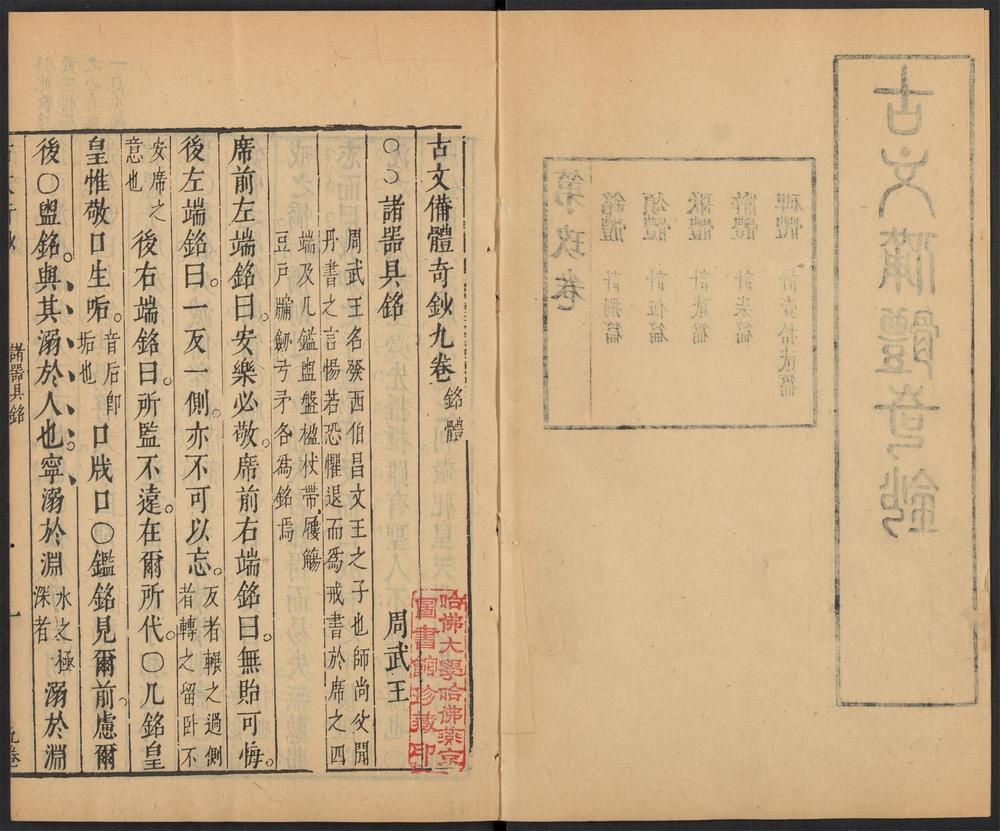 古文備體奇鈔
碑體　計壹拾貳篇
計柒篇
歌體　計貳篇
頌體　計伍篇
銘體　計捌篇
第玖卷
古文備體奇鈔九卷　銘體
〇〇諸器具銘　周武王
周武王名發西伯昌文王之子也師尚父聞
丹書之言惕若恐懼退而爲戒書於席之四
端及几鑑盥盤楹杖帶屨觴
豆戶牖劒弓矛各爲銘焉
席前左端銘曰。安樂必敬。席前右端銘曰。無貽可悔。
後左端銘曰。一反一側。亦不可以忘。反者輾之過側者轉之留卧不
安席之意也　後右端銘曰。所監不遠。在爾所代。〇几銘皇
皇惟敬口生㖃。音后卽垢也　口戕口〇鑑銘見爾前。慮爾
後〇盥銘。與其溺於人也。寧溺於淵水之極深者　溺於淵
諸器具銘　一　九卷
哈佛大學哈佛燕京
圖書館珍藏印